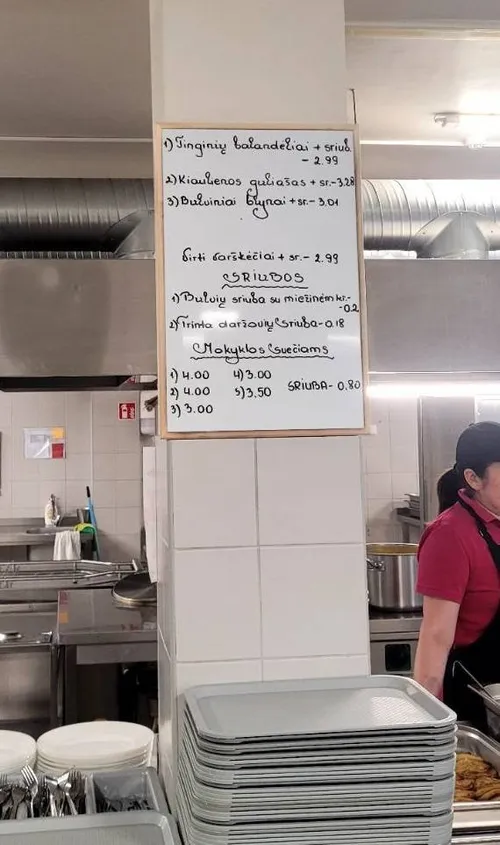 1) Tinginių balandėliai + sriub
- 2.99
2) Kiaulienos guliašas + sr. - 3.28
3) Bulviniai blynai + sr. - 3.01
Virti varškėčiai + sr. - 2.99
SRIUBOS
1) Bulvių sriuba su miežinėm kr. -
- 0.2
2) Trinta daržovių sriuba - 0.18
Mokyklos svečiams
1) 4.00 4) 3.00
2) 4.00 5) 3.50 SRIUBA - 0.80
3) 3.00